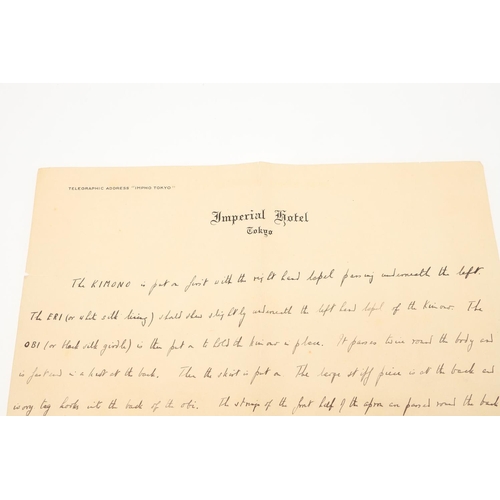 TELEGRAPHIC ADDRESS "IMPHO TOKYO"
Imperial Hotel
Tokyo
The KIMONO is put on first with the right hand lapel passing underneath the left.
The ERI (or white silk lining) should show slightly underneath the left hand lapel of the kimono. The
OBI (or black silk girdle) is then put on to hold the kimono in place. It passes twice round the body and
is fastened in a knot at the back. Then the skirt is put on. The large stiff piece is at the back and
ivory tag hooks into the back of the obi. The strings of the front half of the apron are passed round the back